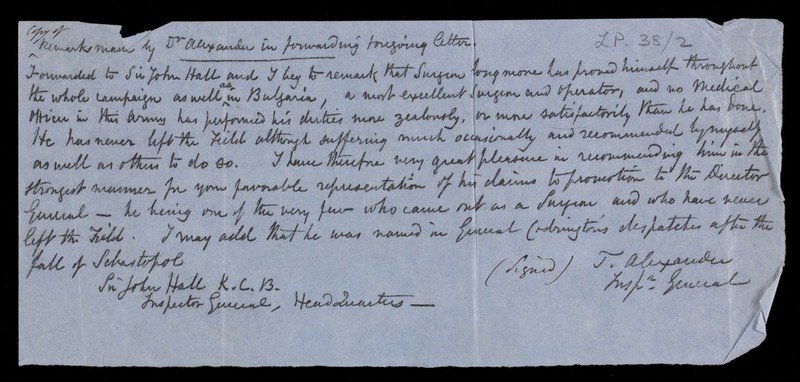 Copy of
Remarks made by Dr Alexander in forwarding foregoing letter.
L.P. 38/2
Forwarded to Sir John Hall and I beg to remark that Surgeon Longmore has proved himself throughout
the whole campaign as well as in Bulgaria, a most excellent Surgeon and operator, and no Medical
Officer in this Army has performed his duties more zealously, or more satisfactorily than he has done.
He has never left the Field although suffering much occasionally and recommended by myself
as well as others to do so. I have therefore very great pleasure in recommending him in the
strongest manner for your favorable representation of his claims to promotion to the Director
General — he being one of the very few who came out as a Surgeon and who have never
left the Field. I may add that he was named in General Codrington's despatches after the
fall of Sebastopol
(Signed) T. Alexander
Inspr General
Sir John Hall K.C.B.
Inspector General, Head Quarters —